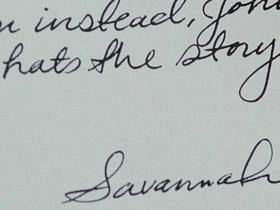 instead,
hats the story
Savannah